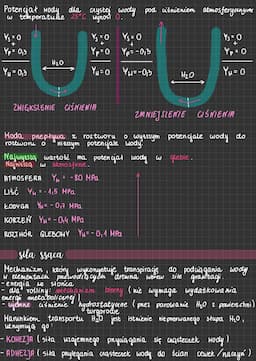 Potencjał wody dla czystej wody pod ciśnieniem atmosferycznym
w temperaturze 25°C wynosi 0.
Ys = 0
Yp = 0
Yw = 0
H₂O
Ys = 0
Yp = 0
Yw = 0
ZWIĘKSZENIE CIŚNIENIA
ZMNIEJSZENIE CIŚNIENIA
Woda przepływa z roztworu o wyższym potencjale wody do
roztworu o niższym potencjale wody.
Najwyższą wartość ma potencjał wody w glebie.
Najniższą w atmosferze.
ATMOSFERA Yw = -80 MPa
LIŚĆ Yw = -1,5 MPa
ŁODYGA Yw = -0,7 MPa
KORZEŃ Yw = -0,4 MPa
ROZTWÓR GLEBOWY Yw = -0,1 MPa
siła ssąca
Mechanizm, który wykorzystuje transpirację do podciągania wody
w elementach przewodzących drewna wbrew sile grawitacji.
- energia w słońca
- dla rośliny: mechanizm bierny (nie wymaga wydatkowania
energii metabolicznej)
- ujemne ciśnienie hydrostatyczne (przez parowanie H₂O z powierzchni)
turgorowe
Warunkiem transportu H₂O jest istnienie nieprzerwanego słupa H₂O,
utrzymują go:
- KOHEZJA (siła wzajemnego przyciągania się cząsteczek wody)
- ADHEZJA (siła przylegania cząsteczek wody do ścian cewek / naczyń)